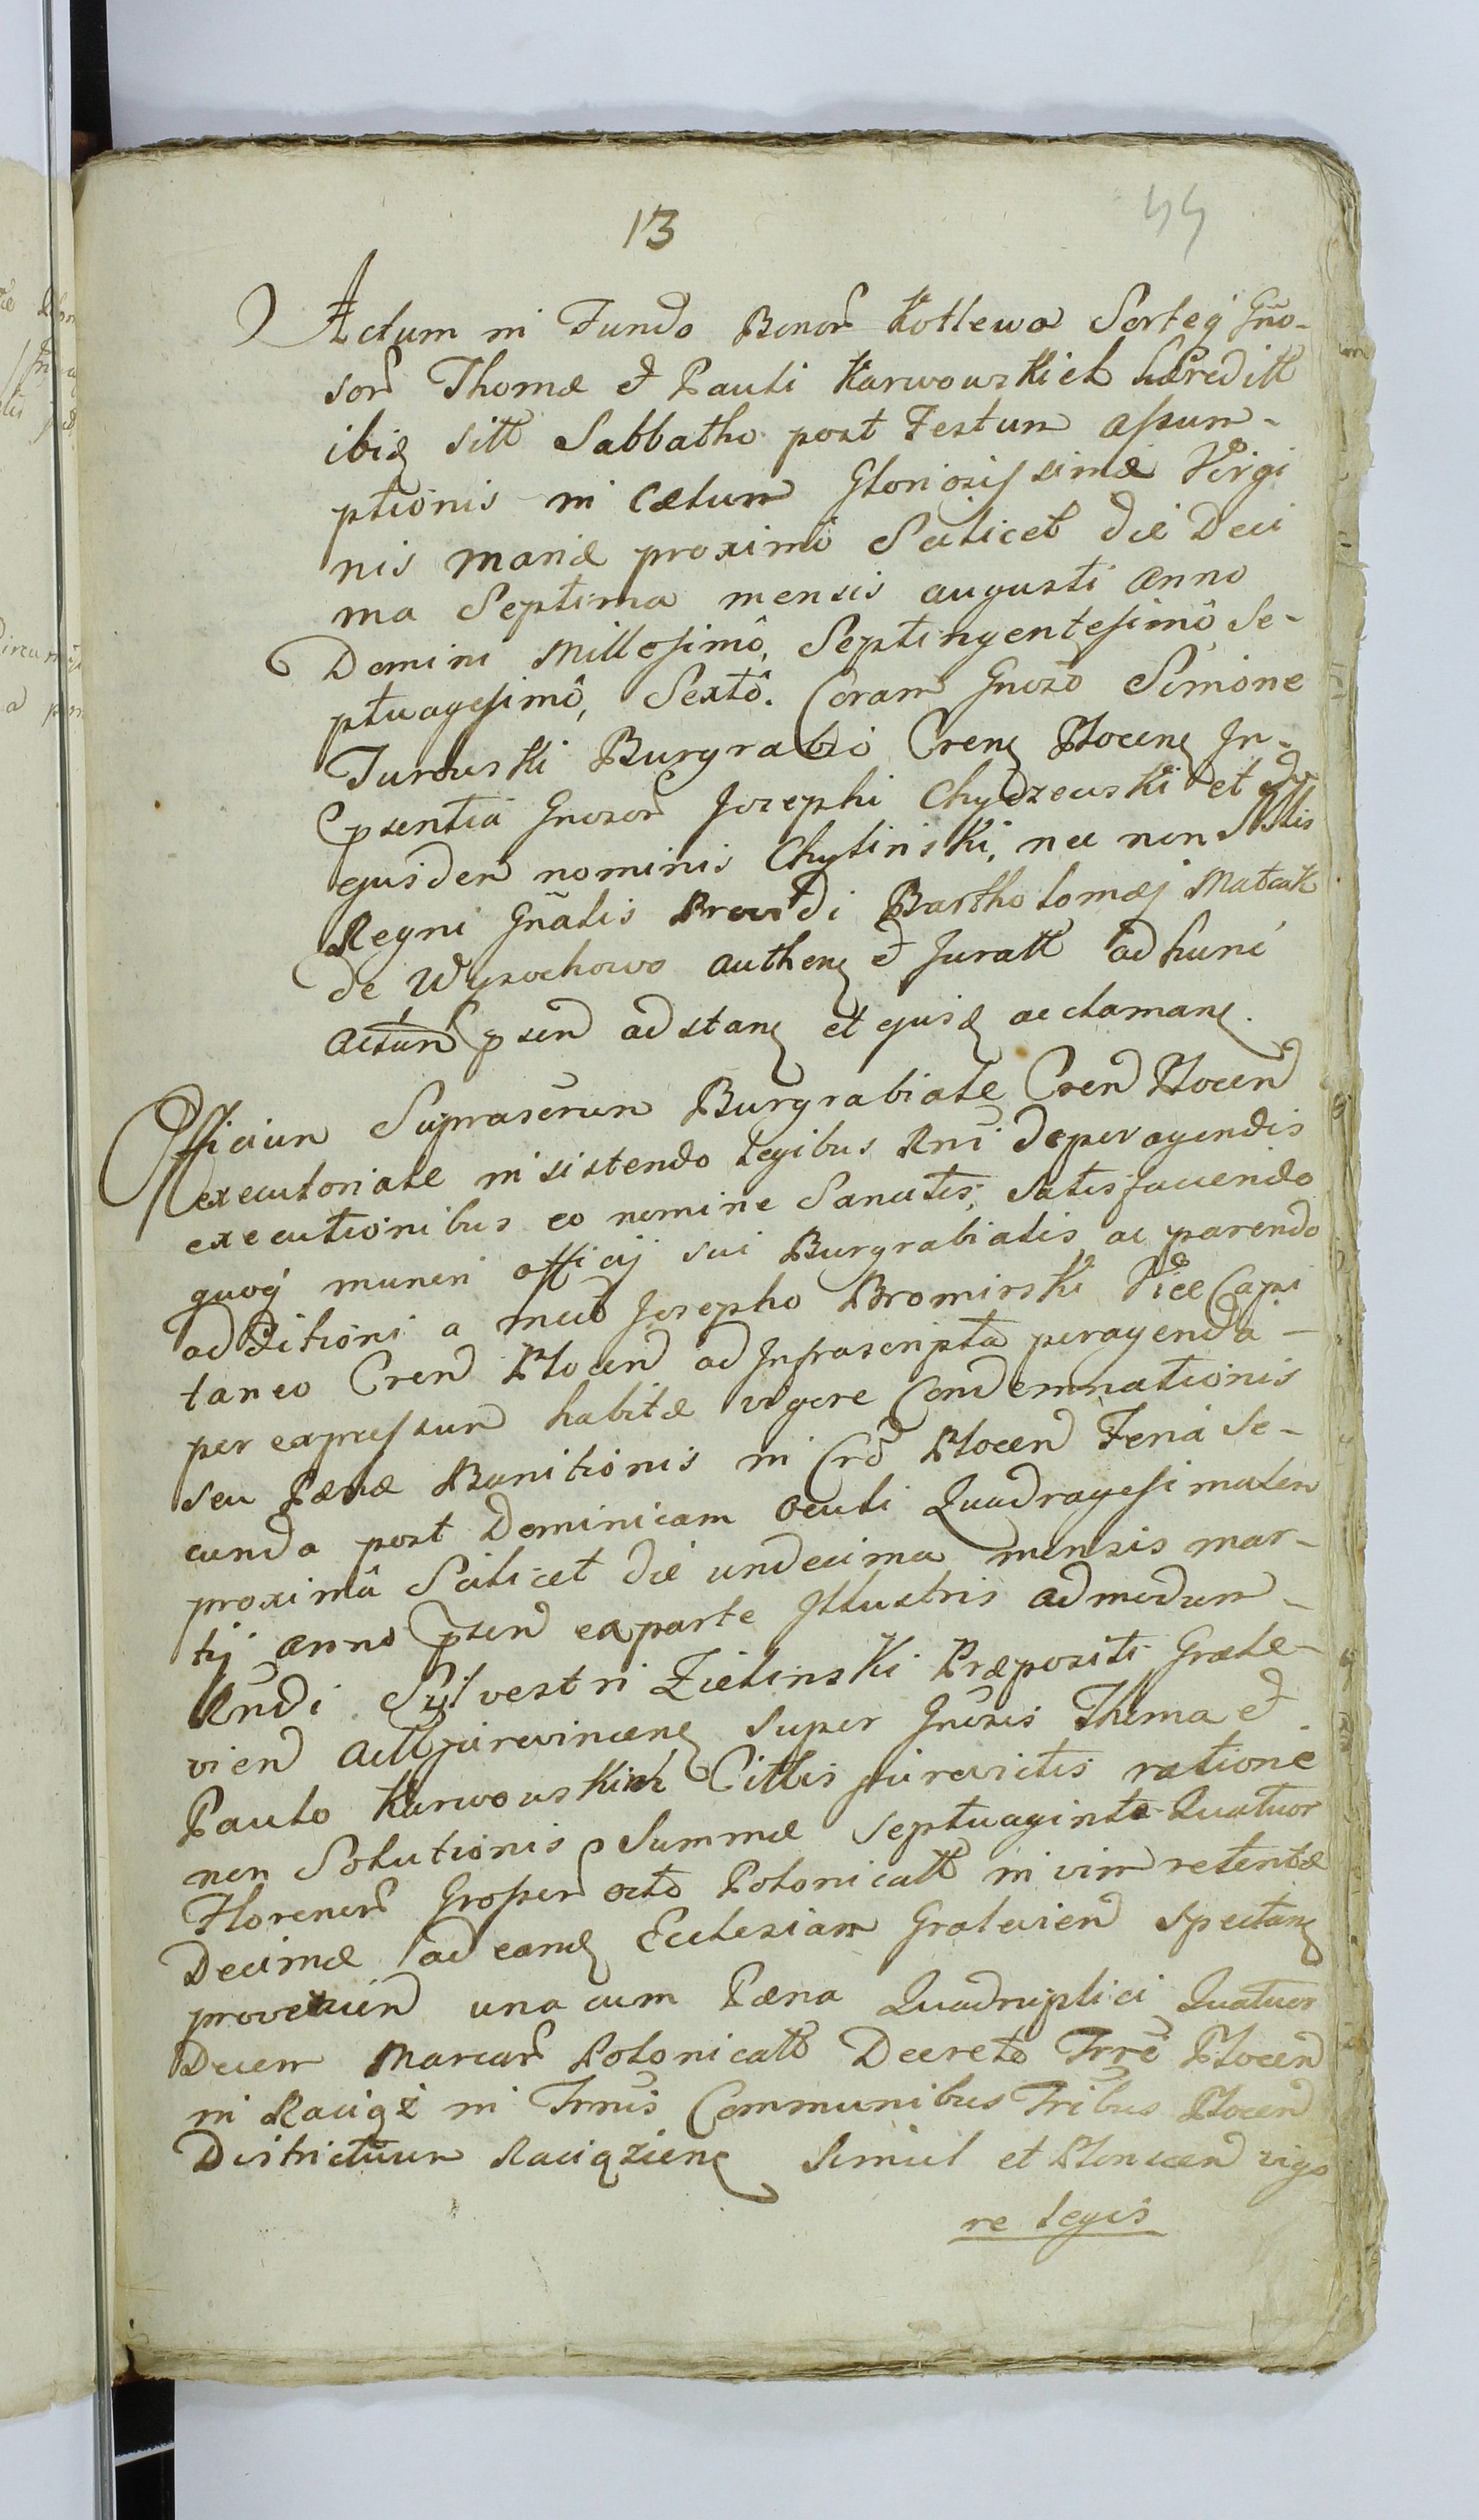 13
44
Actum in Fundo Bonor Kotlewo Sorteq Gno-
sor Thomæ et Pauli Karwowskich hæreditt
ibid sitt Sabbatho post Festum assum-
ptionis in Cælum Gloriosissimæ Virgi
nis Mariæ proximô Scilicet die Deci
ma Septima mensis augusti anno
Domini Millesimô, Septingentesimô Se-
ptuagesimô, Sextô. Coram Gnoso Simone
Turowski Burgrabio Cren Plocen In
psentia Gnosor Josephi Chydzewski et
ejusdem nominis Chylinski, nec non Mtis
Regni Gñalis Providi Bartholomæj Matcak
de Wyrochowo authen et Juratt ad hunc
actum psen adstan et ejusd acclaman.
Officium Suprascrum Burgrabiale Cren Plocen
executoriale insistendo Legibus Rni de peragendis
executionibus eo nomine Sancitis, Satisfaciendo
quoq muneri officij sui Burgrabialis ac parendo
additioni a mco Josepho Bromirski Vice Capi
taneo Cren Plocen ad Infrascripta peragenda -
per expressum habitæ vigore Condemnationis
seu Pænæ Banitionis in Cro Plocen Feria Se-
cunda post Dominicam Oculi Quadragesimalem
proximâ Scilicet die undecima mensis mar-
tij anno psen ex parte Illustris admodum -
Rndi Sylvestri Zielinski Præpositi Grale-
vien Actt jurevincen super Gnosis Thoma et
Paulo Karwowskich Cittis jurevictis ratione
non Solutionis Summæ Septuaginta Quatuor
Florenor Grosser octo Polonicatt in vim retentæ
Decimæ ad eand Ecclesiam Gralevien Spectan
provenien una cum Pæna Quadruplici Quatuor
Decem Marcar Polonicatt Decreto Trrẽ Plocen
in Raciąż in Trmis Communibus Tribus Plocen
Districtuum Raciązien Simul et Plonscen vigo
re legis